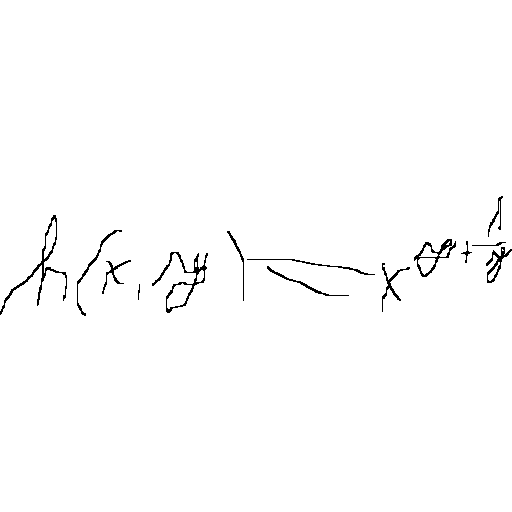 h(x, y) = x^{y + \frac{1}{y}}